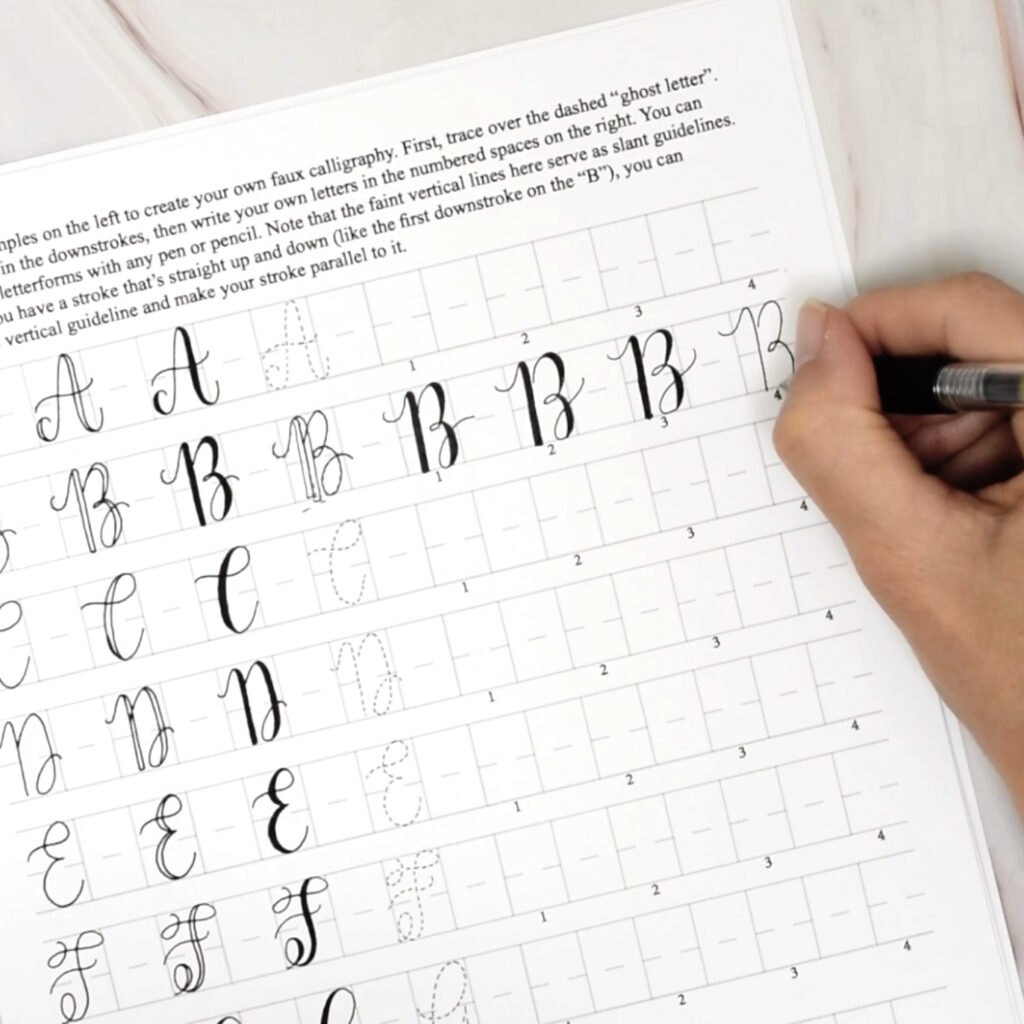 on the left to create your own faux calligraphy. First, trace over the dashed “ghost letter”.
in the downstrokes, then write your own letters in the numbered spaces on the right. You can
letterforms with any pen or pencil. Note that the faint vertical lines here serve as slant guidelines.
have a stroke that’s straight up and down (like the first downstroke on the “B”), you can
vertical guideline and make your stroke parallel to it.
A A A
1 2 3 4
B B B B B B B
1 2 3 4
C C C C
1 2 3 4
D D D D
1 2 3 4
E E E E
1 2 3 4
F F F F
1 2 3 4
2 3